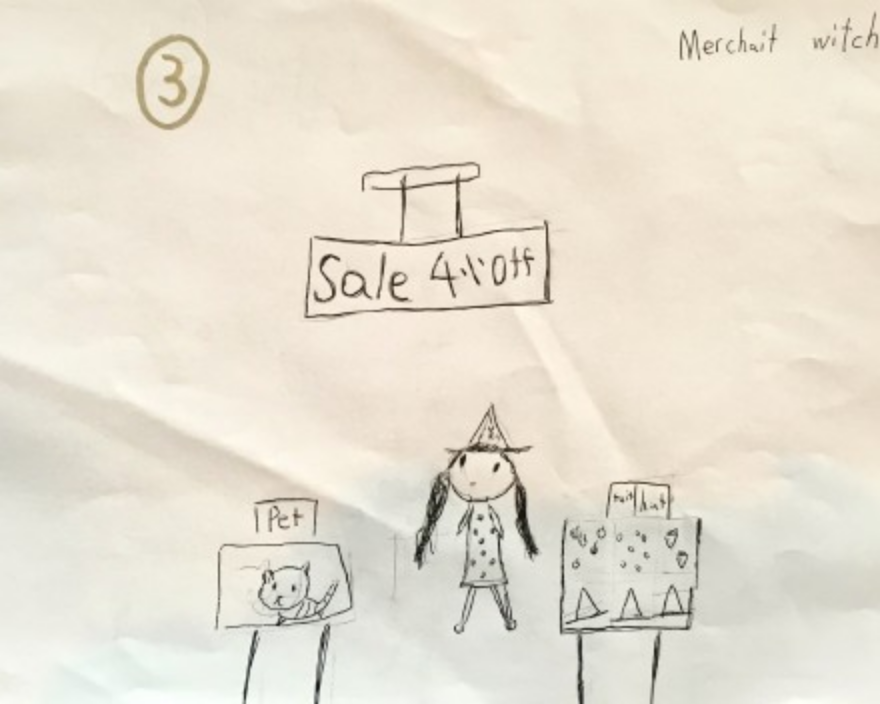 3
Merchait witch
Sale 4% Off
Pet
hat